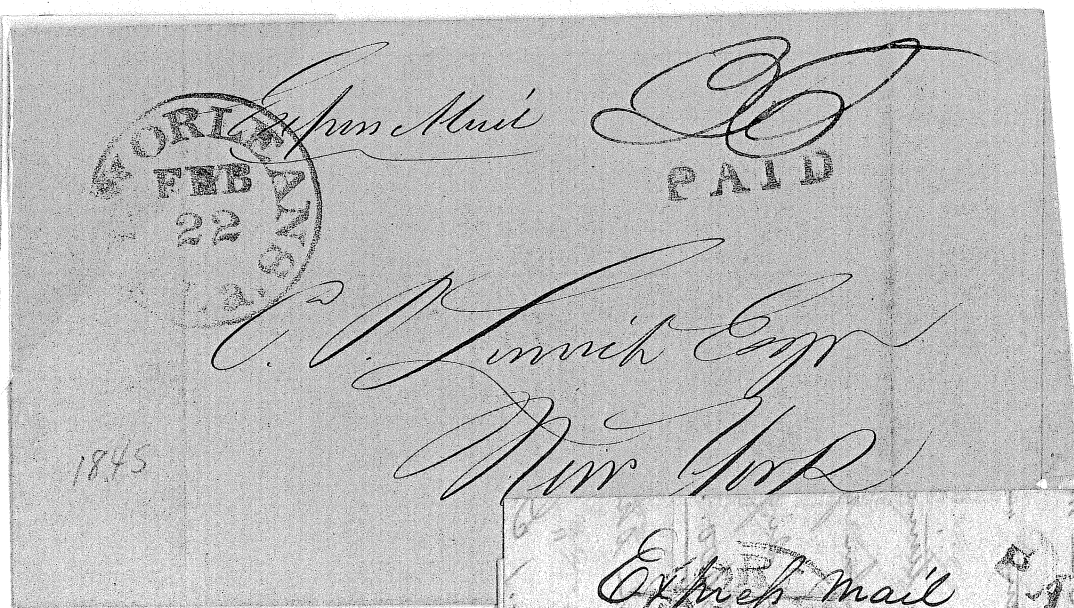 Express Mail
PAID
W ORLEANS
FEB
22
La.
C. P. Leverich Esqr
New York
1845
Express Mail